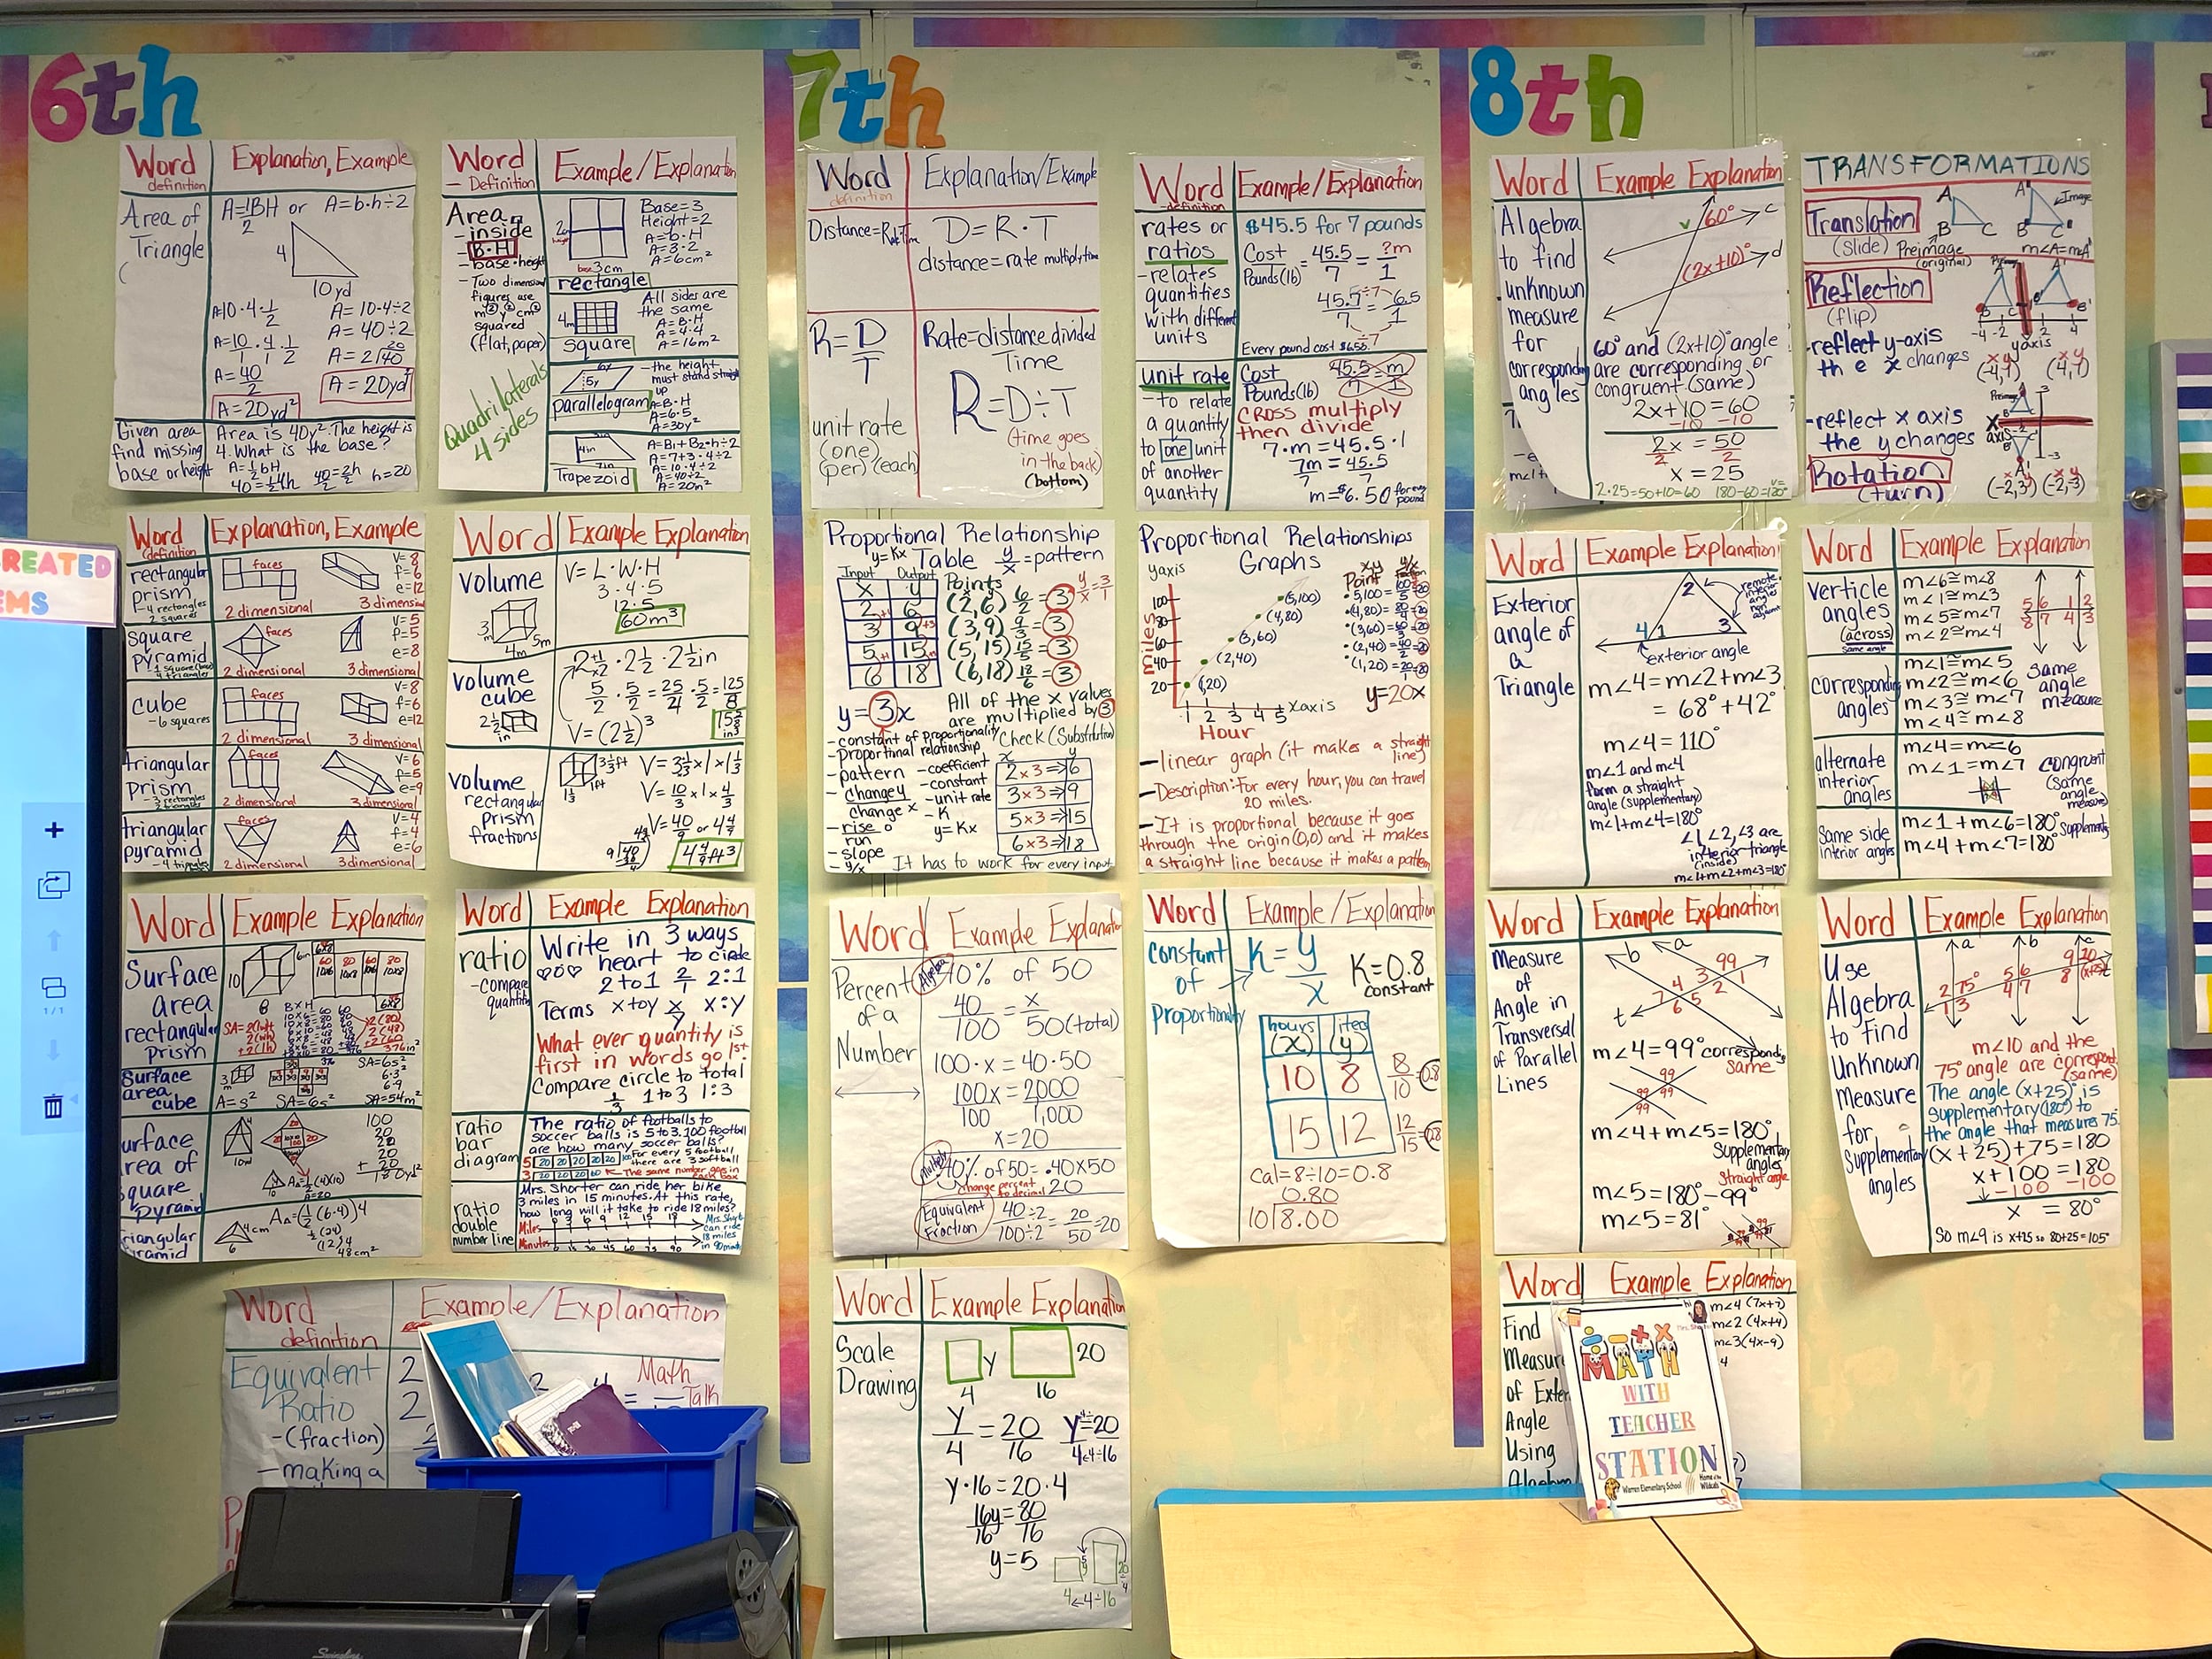 6th
7th
8th
REATED
EMS
Word
definition
Explanation, Example
Area of
Triangle
A=1/2BH or A=b·h÷2
4
10yd
A=10·4·1/2
A=10/1·4/1·1/2
A=40/2
A=20yd²
A=10·4÷2
A=40÷2
A=20yd²
Given area
find missing
base or height
Area is 40y². The height is
4. What is the base?
A=1/2bH
h=20
Word
- Definition
Example/Explanation
Area
- inside
B·H
- base·height
- Two dimensional
figures use
squared
(flat, paper)
Quadrilaterals
4 sides
Base=3
Height=2
A=b·H
A=3·2
A=6cm²
3cm
rectangle
All sides are
the same
A=B·H
A=4·4
A=16m²
4m
square
-the height
must stand straight
up
5y
A=B·H
A=6·5
A=30y²
parallelogram
4in
7in
A=B1+B2·h÷2
A=7+3·4÷2
A=10·4÷2
A=40÷2
A=20m²
Trapezoid
Word
definition
Explanation/Example
D=R·T
distance=rate multiply time
R=D/T
unit rate
(one)
(per) (each)
Rate=distance divided
Time
R=D÷T
(time goes
in the back)
(bottom)
Word
definition
Example/Explanation
rates or
ratios
-relates
quantities
with different
units
$45.5 for 7 pounds
Cost
Pounds(lb)
=45.5/7=?m/1
45.5÷7
7÷7
6.5
1
Every pound cost $6.50.
unit rate
-to relate
a quantity
to one unit
of another
quantity
Cost
Pounds(lb)
45.5=m
7 1
cross multiply
then divide
7·m=45.5·1
7m=45.5
7 7
m=$6.50 for every
pound
Word
Example Explanation
Algebra
to find
unknown
measure
for
corresponding
angles
60°
c
(2x+10)°
d
60° and (2x+10)° angle
are corresponding or
congruent (same)
2x+10=60
-10 -10
2x=50
2 2
x=25
2·25=50+10=60 180-60=120°
TRANSFORMATIONS
Translation
(slide)
Preimage
(original)
Image
A
B
C
A'
B'
C'
m∠A=mA'
Reflection
(flip)
-reflect y-axis
the x changes
-4 -2 2 4
y axis
x y
(-4,1)
x y
(4,1)
-reflect x axis
the y changes
x
axis
3
-3
Rotation
(turn)
x y
(-2,3)
x y
(-2,-3)
Word
(definition)
Explanation, Example
rectangular
prism
-4 rectangles
2 squares
faces
2 dimensional
3 dimensional
v=8
f=6
e=12
square
pyramid
faces
2 dimensional
3 dimensional
v=5
f=5
e=8
cube
-6 squares
faces
2 dimensional
3 dimensional
v=8
f=6
e=12
triangular
prism
-3 rectangles
2 triangles
faces
2 dimensional
3 dimensional
v=6
f=5
e=9
triangular
pyramid
-4 triangles
faces
2 dimensional
3 dimensional
v=4
f=4
e=6
Word
Example Explanation
Volume
3m
4m
5m
V=L·W·H
3·4·5
12·5
60m³
volume
cube
2 1/2
in
2 1/2·2 1/2·2 1/2 in
5/2·5/2=25/4·5/2=125/8
V=(2 1/2)³
15 5/8
in³
volume
rectangular
prism
fractions
3 1/3ft
1ft
1 1/3
V=3 1/3×1×1 1/3
V=10/3×1×4/3
V=40/9 or 4 4/9
4 4/9 ft³
Proportional Relationship
y=Kx Table y/x=pattern
Input
Output
x
y
2 6
3 9
5 15
6 18
Points
(2,6) 6/2=3
(3,9) 9/3=3
(5,15) 15/5=3
(6,18) 18/6=3
y/x=3/1
y=3x
All of the x values
are multiplied by 3
-constant of proportionality
-proportinal relationship
-pattern
-change y
change x
-rise
run
-slope
-y/x
-coefficient
-constant
-unit rate
-K
y=Kx
Check (Substitution)
x y
2×3=>6
3×3=>9
5×3=>15
6×3=>18
It has to work for every input
Proportional Relationships
Graphs
y axis
miles
100
80
60
40
20
(5,100)
(4,80)
(3,60)
(2,40)
(1,20)
1 2 3 4 5
x axis
Hour
x,y
Point
y/x
fraction
• 5,100=100/5=20
•(4,80)=80/4=20
•(3,60)=60/3=20
•(2,40)=40/2=20
•(1,20)=20/1=20
y=20x
-linear graph (it makes a straight
line)
-Description: For every hour, you can travel
20 miles.
-It is proportional because it goes
through the origin (0,0) and it makes
a straight line because it makes a pattern
Word
Example Explanation
Exterior
angle of
a
Triangle
2
remote
interior
angles
non
adjacent
4
1
3
exterior angle
m∠4=m∠2+m∠3
=68°+42°
m∠4=110°
m∠1 and m∠4
form a straight
angle (supplementary)
m∠1+m∠4=180°
∠1,∠2,∠3 are
interior triangle
(inside)
m∠1+m∠2+m∠3=180°
Word
Example Explanation
verticle
angles
(across)
Same angle
m∠6≅m∠8
m∠1≅m∠3
m∠5≅m∠7
m∠2≅m∠4
5 6 1 2
8 7 4 3
corresponding
angles
m∠1≅m∠5
m∠2≅m∠6
m∠3≅m∠7
m∠4≅m∠8
same
angle
measure
alternate
interior
angles
m∠4=m∠6
m∠1=m∠7
congruent
(same
angle
measure)
Same side
interior angles
m∠1+m∠6=180°
m∠4+m∠7=180°
Supplementary
Word
Example Explanation
Surface
area
rectangular
prism
10
8
6in
SA=2(lwh
2(wh)
+2(lh)
B×H
2(80)
2(48)
+2(60)
376in²
Surface
area
cube
3
m
A=s²
SA=6s²
SA=6s²
6·3²
6·9
SA=54m²
urface
rea of
quare
pyramid
10yd
100
20
20
20
+20
180yd²
A=20
riangular
yramid
4cm
6
A=(1/2(6·4))4
1/2(24)
(12)4
48cm²
Word
Example Explanation
ratio
-compare
quantities
Write in 3 ways
heart to circle
2 to 1 2/1 2:1
Terms x to y x/y x:y
What ever quantity is
first in words go 1st
Compare circle to total
1/3 1 to 3 1:3
ratio
bar
diagram
The ratio of footballs to
soccer balls is 5 to 3. 100 football
are how many soccer balls?
5 20 20 20 20 20
For every 5 football
there are 3 softball
3 20 20 20 60
The same number goes in
each box
ratio
double
number line
Mrs. Shorter can ride her bike
3 miles in 15 minutes. At this rate,
how long will it take to ride 18 miles?
Miles
0 3 6 9 12 15 18
Minutes
0 15 30 45 60 75 90
Mrs. Short
can ride
18 miles
in 90 minutes
Word
Example Explanation
Percent
of a
Number
Algebra
40% of 50
40/100=x/50(total)
100·x=40·50
100x=2000
100
x=20
Multiply
40% of 50=.40×50
Change percent
to decimal
20
Equivalent
Fraction
40÷2/100÷2=20/50=20
Word
Example/Explanation
constant
of
proportionality
K=y/x
K=0.8
constant
hours
(x)
(y)
10 8
15 12
8/10=0.8
12/15=0.8
cal=8÷10=0.8
0.80
10)8.00
Word
Example Explanation
Measure
of
Angle in
Transversal
of Parallel
Lines
b
a
t
99
3
1
4
2
7
5
6
m∠4=99° corresponding
same
99
99 99
99
m∠4+m∠5=180°
Supplementary
angles
Straight angle
m∠5=180°-99°
m∠5=81°
Word
Example Explanation
Use
Algebra
to find
unknown
measure
for
supplementary
angles
a
b
c
t
2 75°
1 3
5 6
4 7
9 10
8 (x+25)
m∠10 and the
75° angle are correspond.
(same)
The angle (x+25)° is
supplementary (180°) to
the angle that measures 75.
(x+25)+75=180
x+100=180
-100 -100
x =80°
So m∠9 is x+25 so 80+25=105°
Word
definition
Example/Explanation
Equivalent
Ratio
-(fraction)
-making a
Math
Talk
Word
Example Explanation
Scale
Drawing
y
4
20
16
y/4=20/16
y·16=20·4
16y=80
16 16
y=5
4÷4÷16
Word
Example Explanation
Find
Measur
of Exter
Angle
Using
Algebra
m∠4 (7x+7)
m∠2 (4x+4)
m∠3(4x-9)
hi
MATH
WITH
TEACHER
STATION
Warren Elementary School
Home of the
Wildcats
1/1
Interact Differently
Swingline